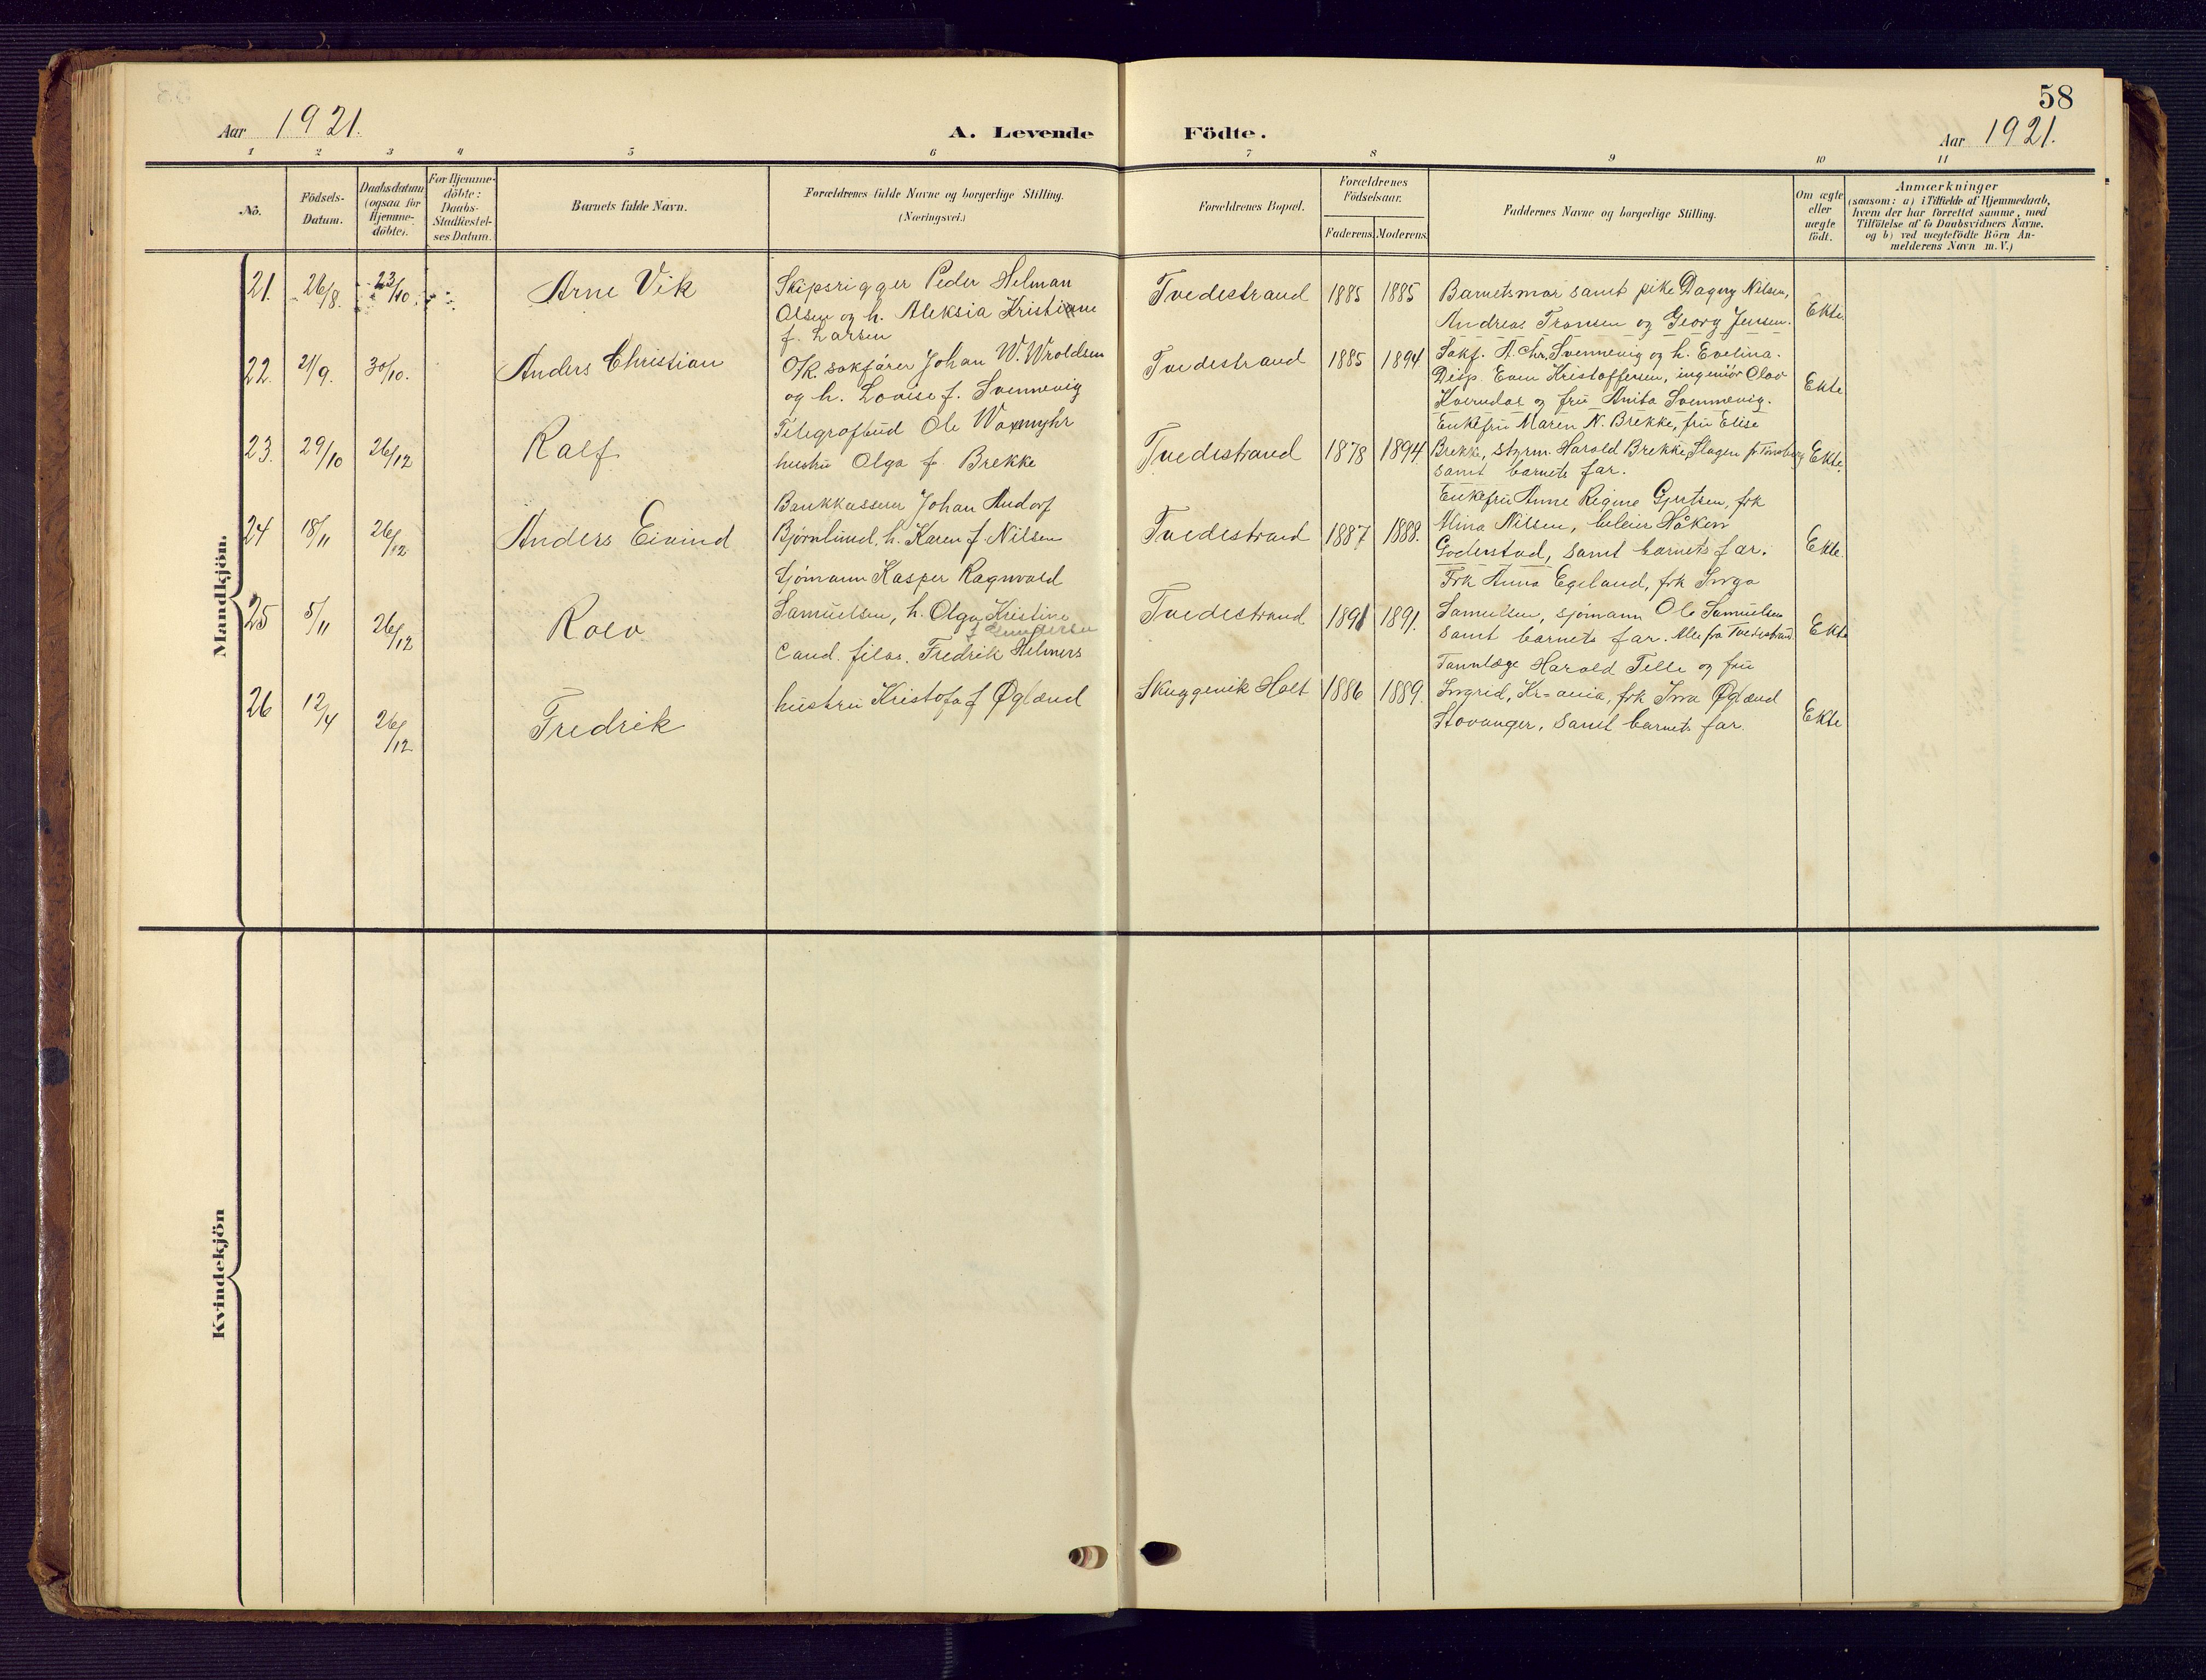 58
Aar 1921.
A. Levende Födte.
Aar 1921.
1 2 3 4 5 6 7 8 9 10 11
No.
Födsels-
Datum.
Daabsdatum
(ogsaa for
Hjemme-
döbte).
For Hjemme-
döbte:
Daabs-
Stadfæstel-
ses Datum.
Barnets fulde Navn.
Forældrenes fulde Navne og borgerlige Stilling.
(Næringsvei.)
Forældrenes Bopæl.
Forældrenes
Födselsaar.
Faderens. Moderens.
Faddernes Navne og borgerlige Stilling.
Om ægte
eller
uægte
födt.
Anmærkninger
(saasom: a) i Tilfælde af Hjemmedaab,
hvem der har forrettet samme, med
Tilföielse af to Daabsvidners Navne.
og b) ved uægtefödte Börn An-
melderens Navn m. V.)
Mandkjön.
21. 26/8. 23/10. Arne Vik
Skipsrigger Peder Helman
Olsen og h. Aleksia Kristiane
f. Larsen
Tvedestrand 1885 1885
Barnetsmor samt pike Dagny Nilsen,
Andreas Fransen og Georg Jensen.
Ekte.
22. 21/9. 30/10. Anders Christian
O/R. sakfører Johan W. Wroldsen
og h. Lovise f. Svennevig
Tvedestrand 1885 1894
Sakf. A. Chr. Svennevig og h. Evelina.
Disp. Even Kristoffersen, ingeniör Olav
Kverndal og fru Anita Svennevig.
Ekte
23. 29/10 26/12 Ralf
Telegrafbud Ole Waxmyhr
hustru Olga f. Brekke
Tvedestrand 1878 1894
Enkefru Maren N. Brekke, fru Elise
Brekke, styrm. Harald Brekke, Slagen pr Tönsberg
samt barnets far.
Ekte.
24 18/11 26/12 Anders Eivind
Bankkasserer Johan Andorf
Bjørnlund, h. Karen f. Nilsen
Tvedestrand 1887 1888.
Enkefru Anne Regine Gjertsen, frk
Mina Nilsen, Håken
Goderstad, samt barnets far.
Ekte.
25 5/11 26/12 Rolv
Sjömann Kasper Ragnvald
Samuelsen, h. Olga Kristine
f Gundersen
Tvedestrand 1891 1891.
Frk Anna Egeland, frk Inga
Samuelsen, sjömann Ole Samuelsen
samt barnets far. Alle fra Tvedestrand.
Ekte
26 12/4 26/12 Fredrik
Cand. filos. Fredrik Helmers
hustru Kristofa f Øglænd
Skuggevik Holt 1886 1889.
Tannlæge Harald Telle og fru
Ingrid, Kr-ania, frk Inra Øglænd
Stavanger, samt barnets far.
Ekte
Kvindekjön